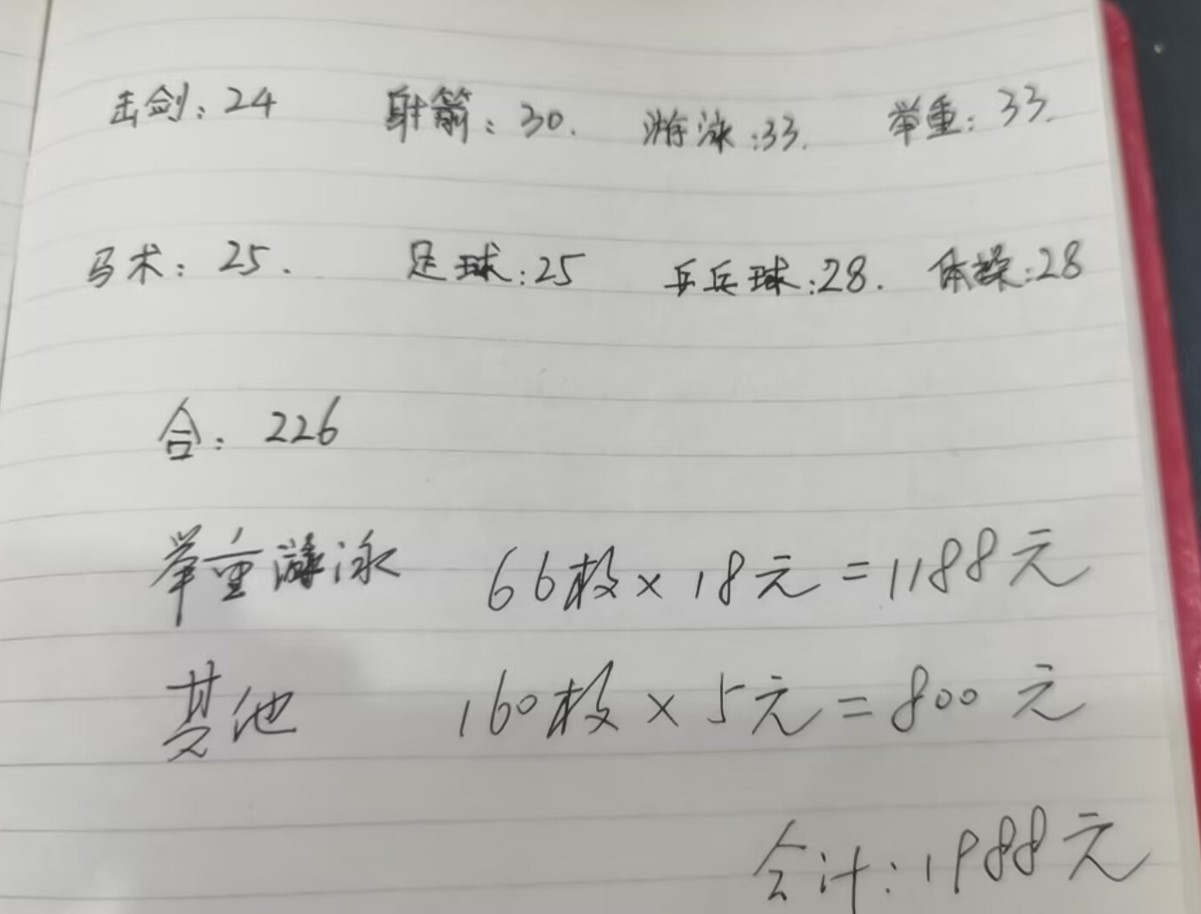 击剑：24 射箭：30. 游泳：33. 举重：33.
马术：25. 足球：25 乒乓球：28. 体操：28
合：226
举重游泳 66枚×18元=1188元
其他 160枚×5元=800元
合计：1988元